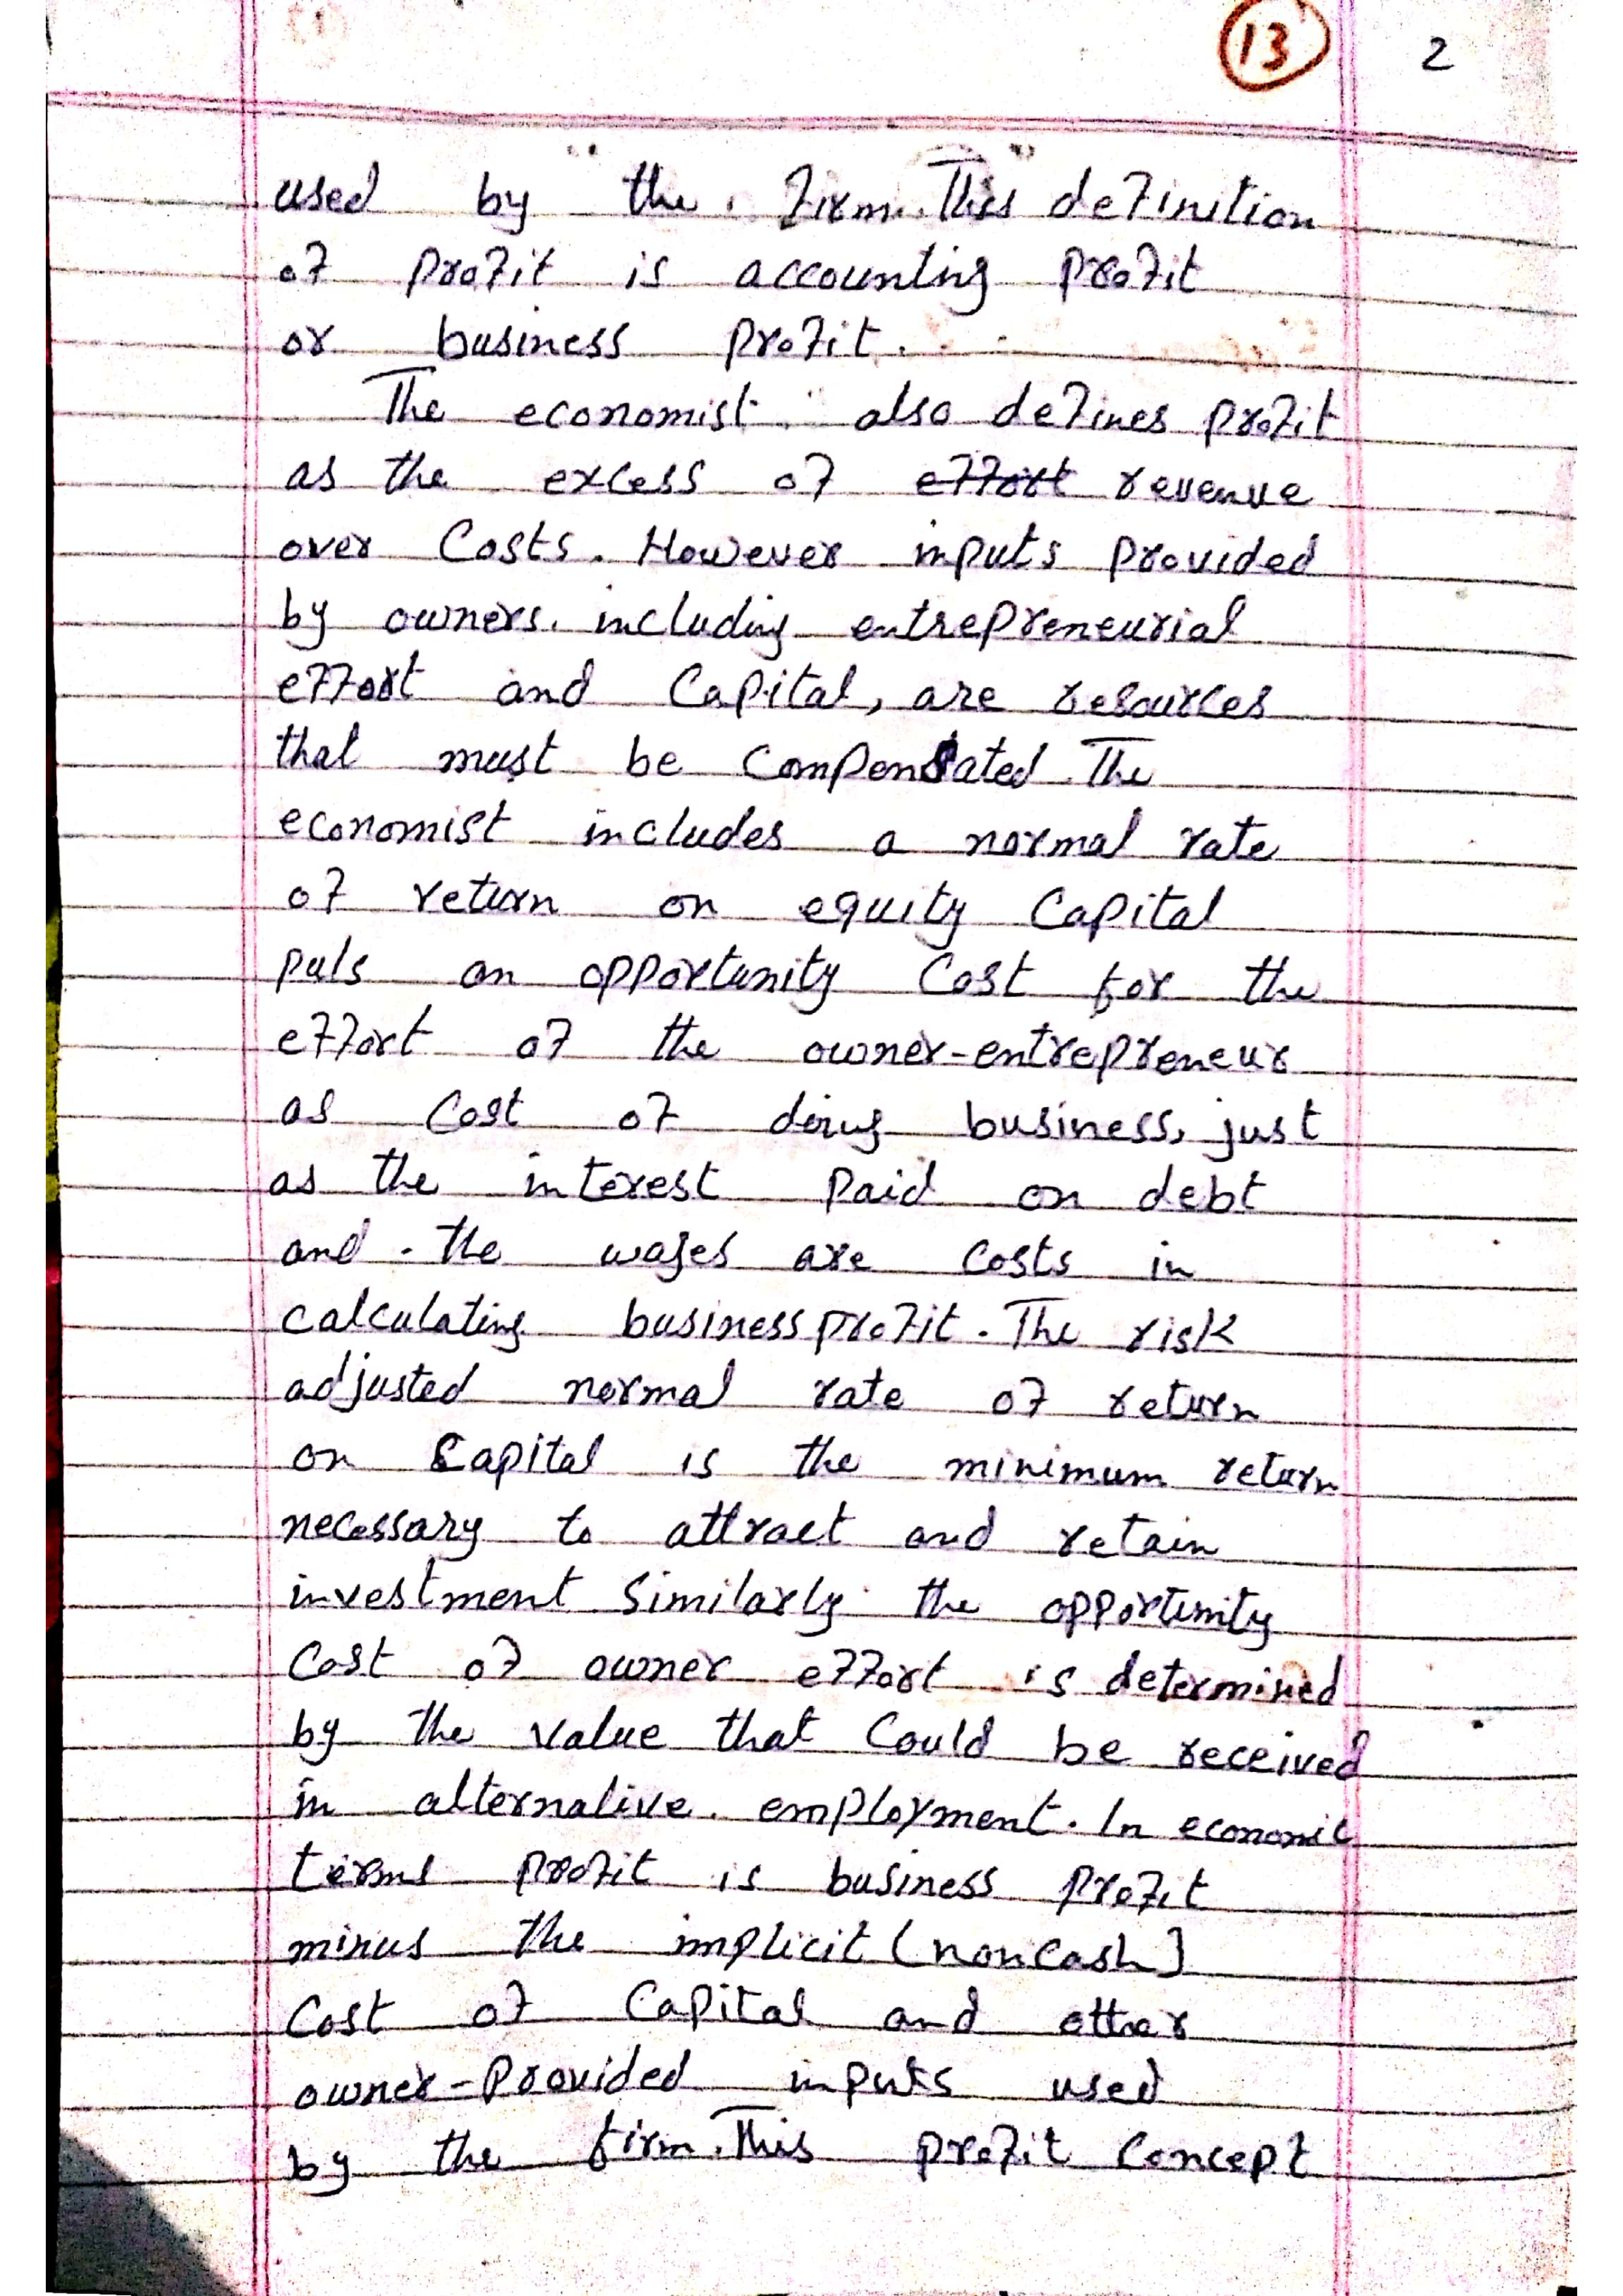 13 2
used by the firm. This definition
of profit is accounting profit
or business profit.
The economist also defines profit
as the excess of effort revenue
over Costs. However inputs provided
by owners. including entrepreneurial
effort and Capital, are resources
that must be compensated. The
economist includes a normal rate
of return on equity Capital
puls an opportunity Cost for the
effort of the owner-entrepreneur
as Cost of doing business, just
as the interest paid on debt
and the wages are Costs in
calculating business profit. The risk
adjusted normal rate of return
on Capital is the minimum return
necessary to attract and retain
investment Similarly the opportunity
Cost of owner effort is determined
by the value that Could be received
in alternative employment. In economic
terms profit is business profit
minus the implicit (noncash)
Cost of Capital and other
owner-Provided inputs used
by the firm. This profit Concept